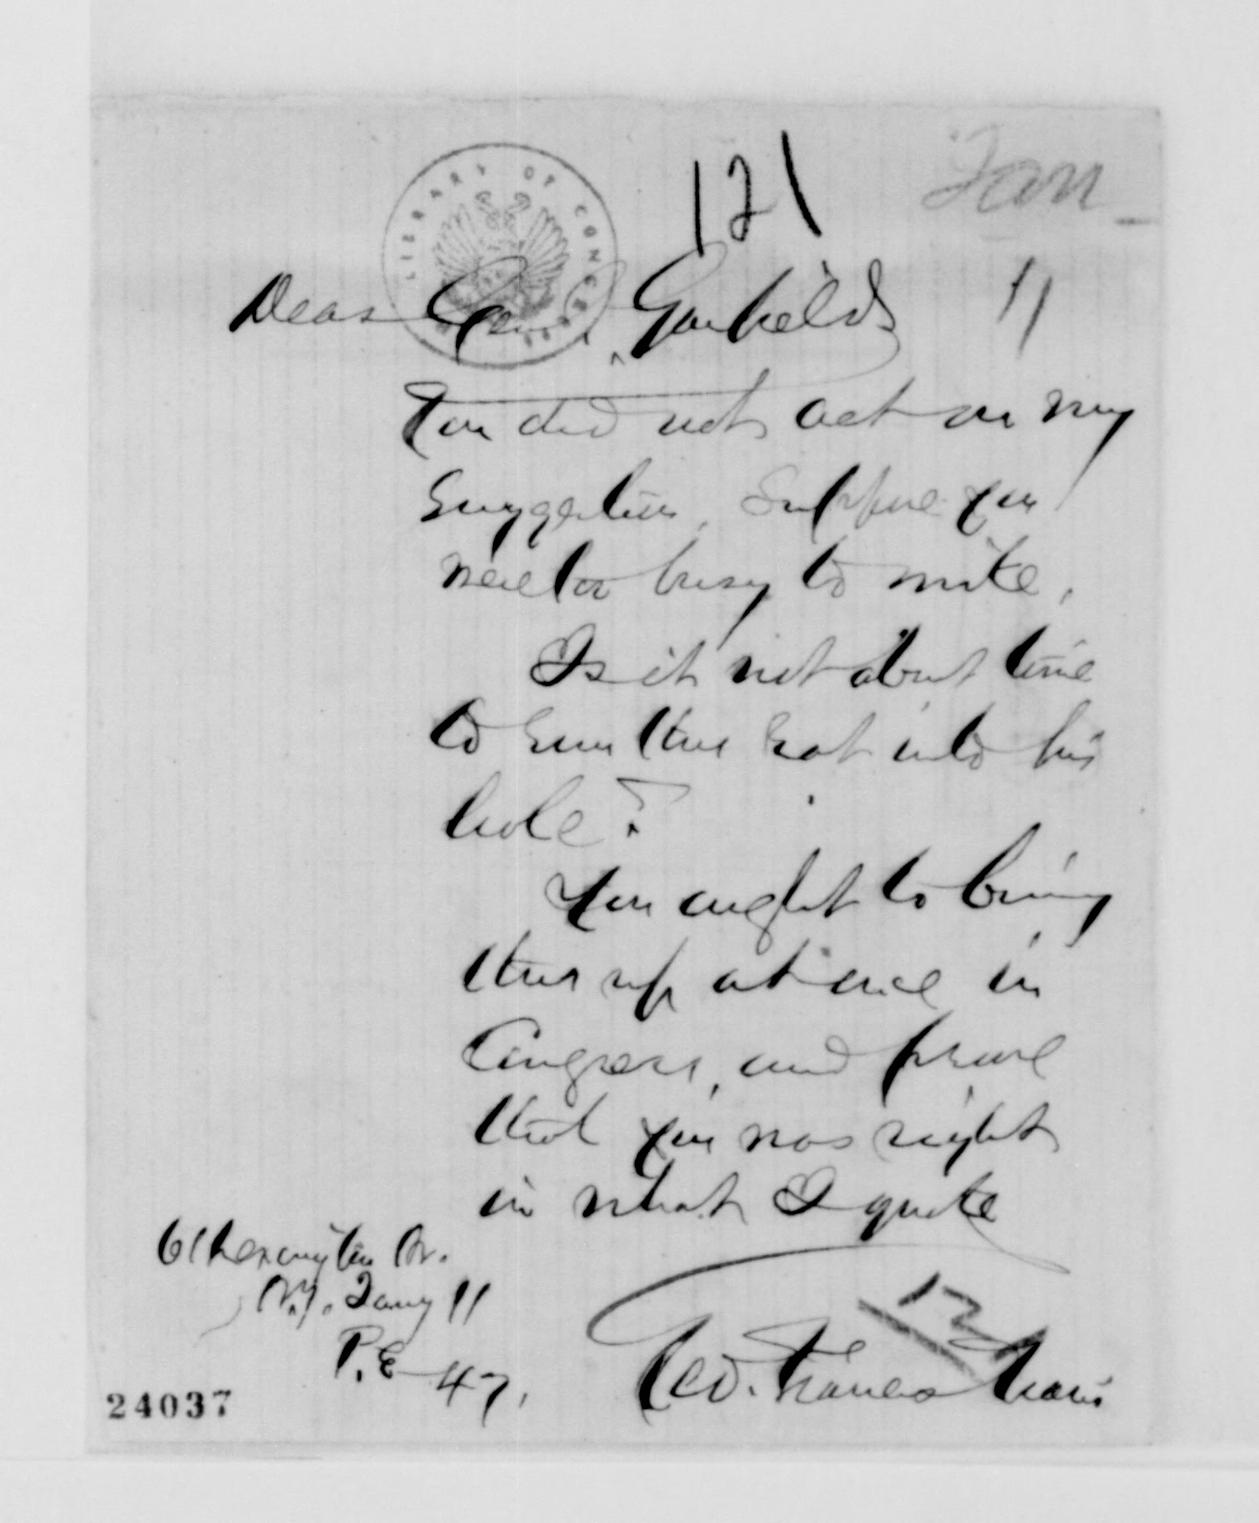 121
Jan
11
LIBRARY OF CONGRESS
Dear Genl. Garfield
You did not act on my
suggestion, Suppose you
were too busy to write.
Is it not about time
to run this rat into his
hole?
You ought to bring
this up at once in
Congress, and prove
that you was right
in what I quote
61 Lexington Av.
N.Y. Jany 11
P.E 47.
12
Geo. Francis Train
24037